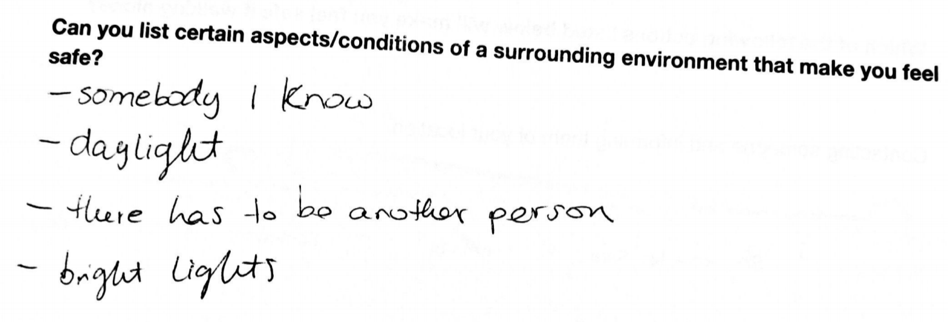 Can you list certain aspects/conditions of a surrounding environment that make you feel
safe?
- somebody I know
- daylight
- there has to be another person
- bright lights